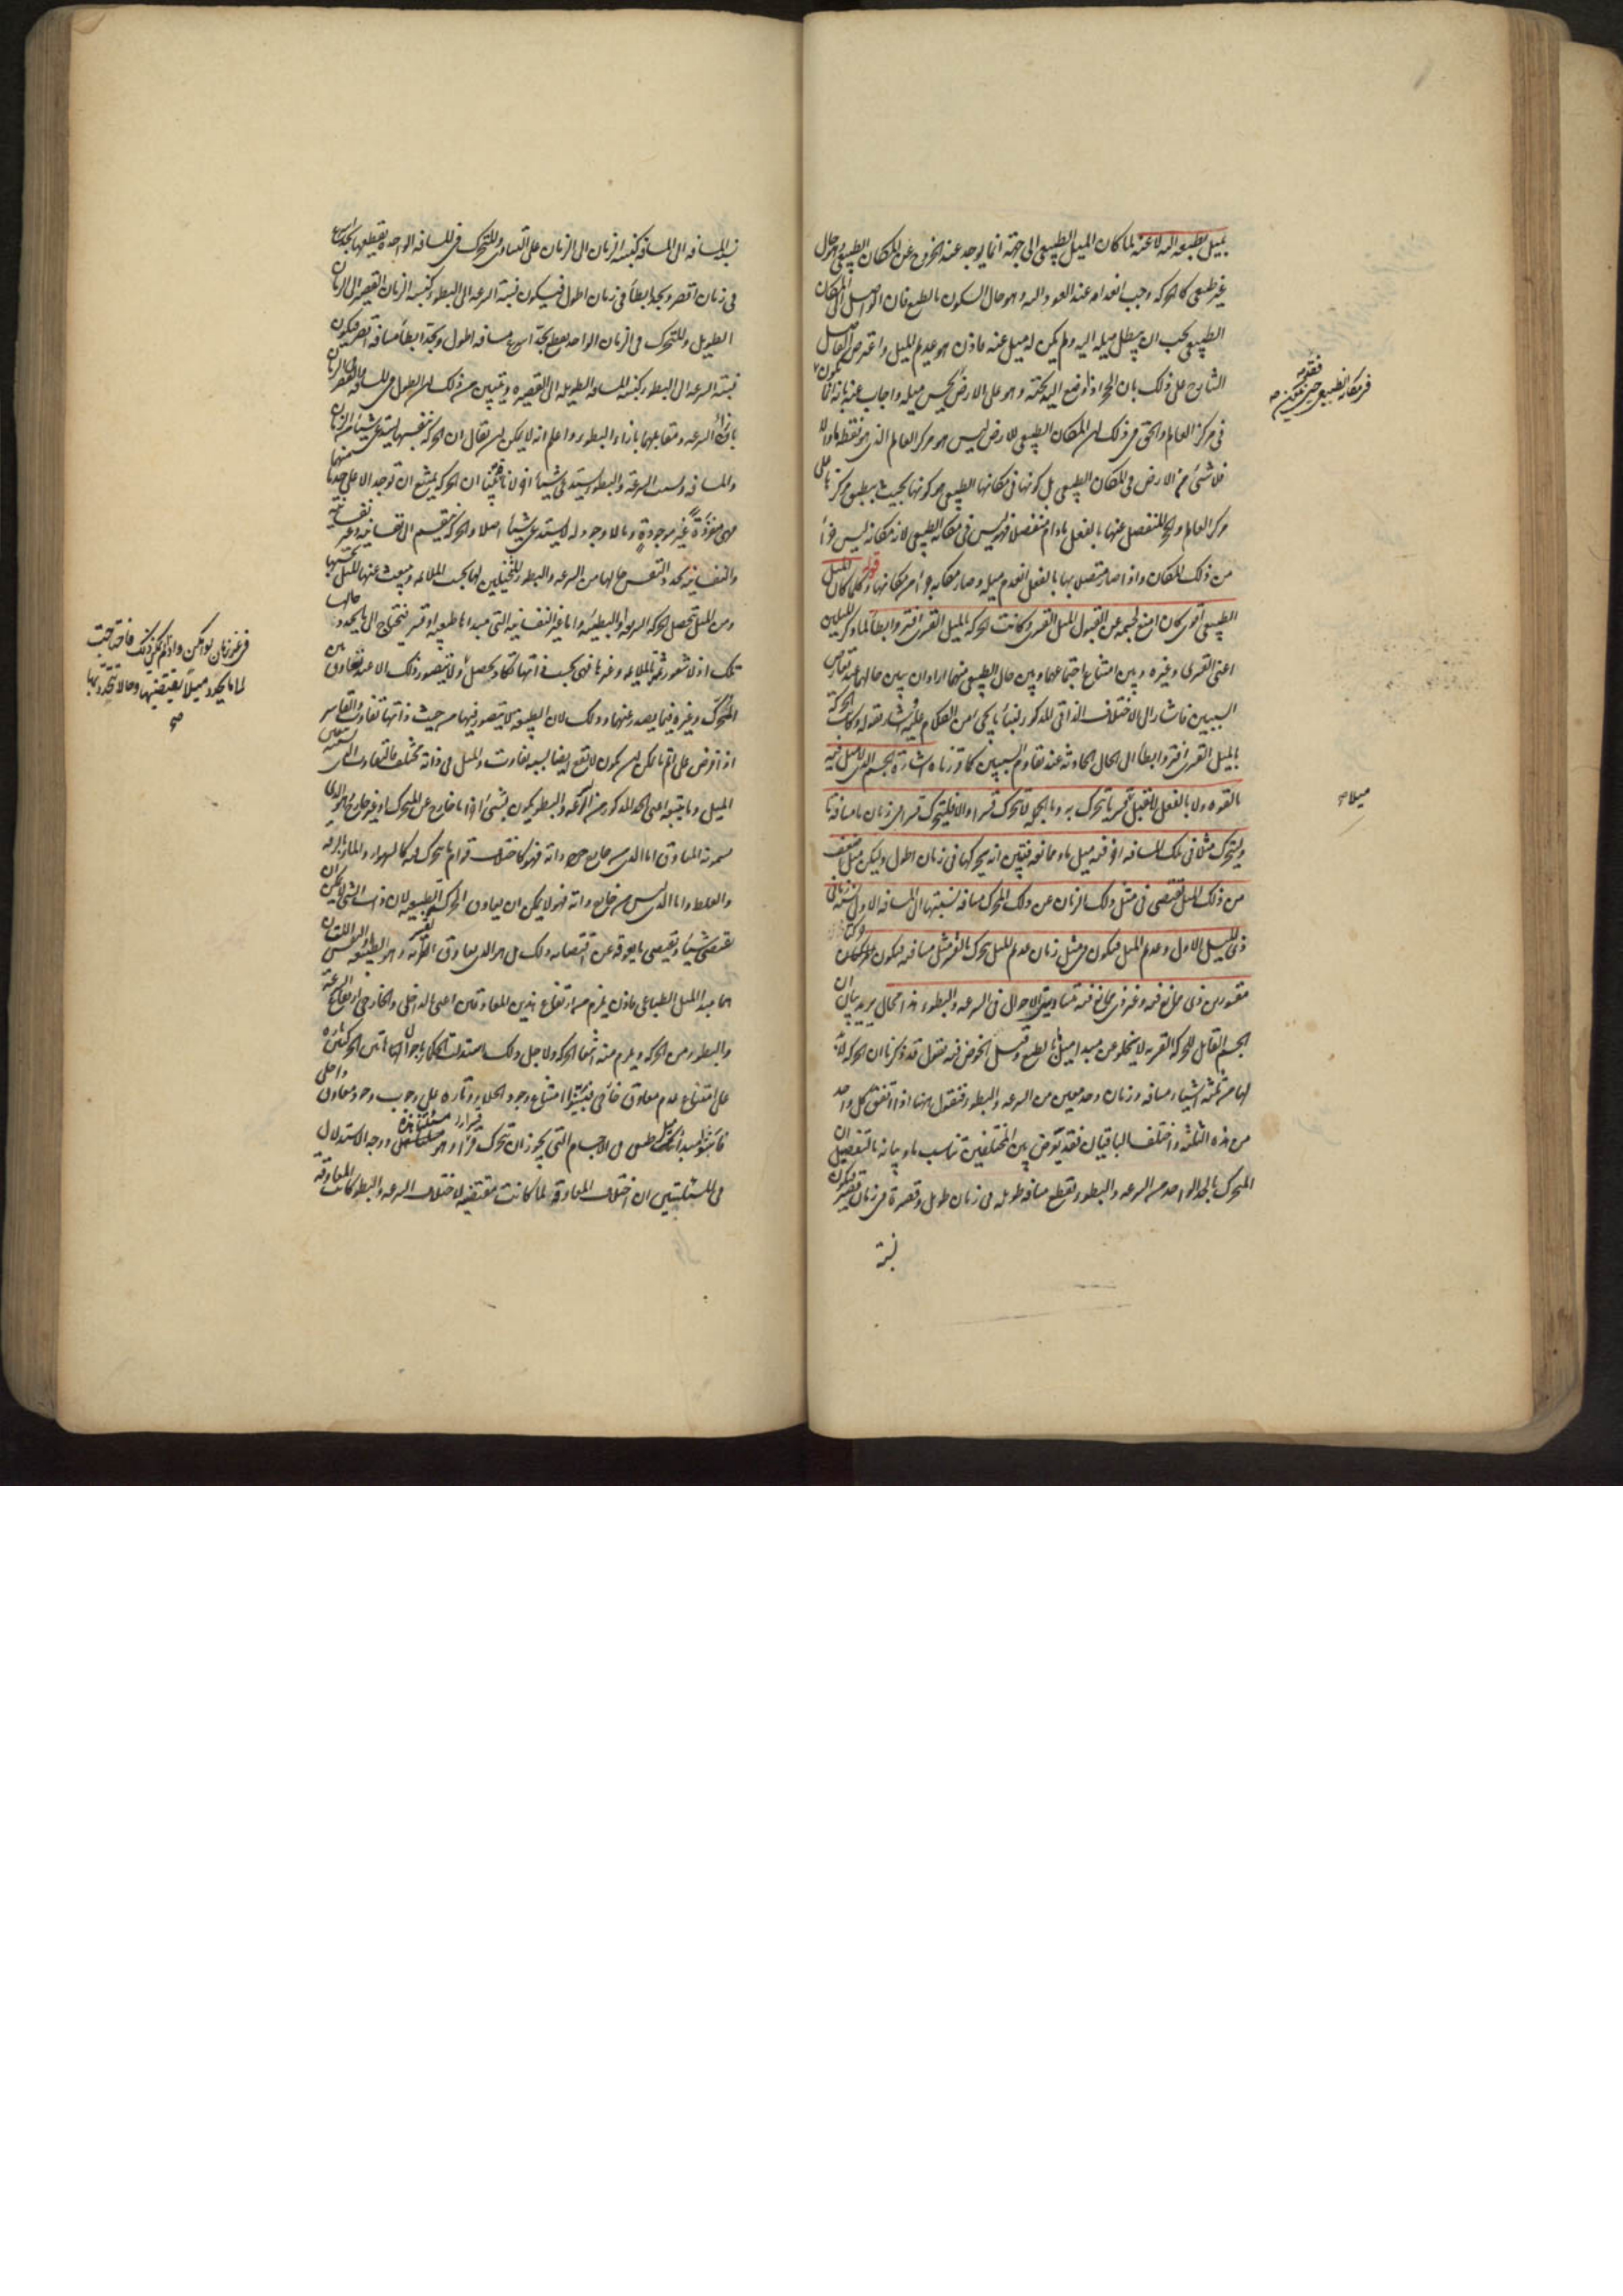 يميل بطبعه اليه لا عنه لما كان الميل الطبيعي الى جهة انما يوجد عند الخروج عن المكان الطبيعي وهو حال
غير طبيعي كالحركة وجب انعدامه عند العود اليه وهو حال السكون بالطبع فان الواصل الى المكان
الطبيعي يجب ان يبطل ميله اليه ولم يكن له ميل عنه فاذن هو عديم الميل واعترض الفاضل
الشارح على ذلك بان الحجر اذا وضع اليد تحته وهو على الارض يحس ميله واجاب عنه بانه انما يكون
في مركز العالم والحق في ذلك ان المكان الطبيعي للارض ليس هو مركز العالم الذي هو نقطة ما والا
فلا شئ من الارض في المكان الطبيعي بل كونها في مكانها الطبيعي هو كونها بحيث ينطبق مركزها على
مركز العالم والحجر المنفصل عنها بالفعل مادام منفصلا فهو ليس في مكانه الطبيعي لان مكانه ليس جزءا
من ذلك المكان واذا صار متصلا بها بالفعل انعدم ميله وصار مكانه جزءا من مكانها قوله وكلما كان الميل
الطبيعي اقوى كان امنع لجسمه عن القبول للميل القسري وكانت الحركة بالميل القسري افتر وابطأ لما ذكر الميلين
اعني القسري وغيره وبين امتناع اجتماعهما وبين حال الطبيعي منهما اراد ان يبين حالهما عند تعارض
السببين فاشار الى الاختلاف الذاتي المذكور وبقوله وكانت الحركة
بالميل القسري افتر وابطأ الى الحال الحادثة عند تقاوم السببين كما قررناه اشارة الجسم الذي لا ميل فيه
بالقوة ولا بالفعل لا يقبل قسريا يتحرك به وبالجملة لا يتحرك قسرا والا فليتحرك قسرا في زمان ما مسافة ما
وليتحرك مثلا في تلك المسافة اخر فيه ميل ما وممانعة فتبين انه يحركها في زمان اطول وليكن ميل اضعف
من ذلك الميل يقتضي في مثل ذلك الزمان عن ذلك المحرك مسافة نسبتها الى المسافة الاولى نسبة زماني
ذي الميل الاول وعديم الميل فيكون في مثل زمان عديم الميل يتحرك بالقسر مثل مسافته فيكون حركتا
مقسورين ذي ممانع فيه وغير ذي ممانع فيه متساويتي الاحوال في السرعة والبطوء هذا محال يريد بيان ان
الجسم القابل للحركة القسرية لا يخلو عن مبدا ميل ما بالطبع وقبل الخوض فيه نقول قد ذكرنا ان الحركة لابد
لها من ثلثة اشياء مسافة وزمان وحد معين من السرعة والبطوء فنقول هنا اذا اتفق كل واحد
من هذه الثلثة واختلف الباقيان فقد يعرض بين المختلفين تناسب ما وبيانه بالتفصيل ان
المتحرك بالحد الواحد من السرعة والبطوء يقطع مسافة طويلة في زمان طويل وقصيرة في زمان قصير فيكون
نسبة
فقوله
في مكانه الطبيعي حين يكون صح
ميلا صح
نسبة المسافة الى المسافة كنسبة الزمان الى الزمان على التساوي والمتحرك في المسافة الواحدة يقطعها بحد اسرع
في زمان اقصر وبحد ابطأ في زمان اطول فيكون نسبة السرعة الى البطوء كنسبة الزمان القصير الى الزمان
الطويل والمتحرك في الزمان الواحد يقطع بحد اسرع مسافة اطول وبحد ابطأ مسافة اقصر فيكون
نسبة السرعة الى البطوء كنسبة المسافة الطويلة الى القصيرة ويتبين من ذلك ان الطول في المسافة والقصر في الزمان
بازاء السرعة ومقابلهما بازاء البطوء واعلم انه لا يمكن ان يقال ان الحركة بنفسها يستدعي شيئا من الزمان
والمسافة وبسبب السرعة والبطوء يستدعي شيئا اخر لانا بينا ان الحركة يمتنع ان توجد الا على حد ما منهما
فهي مفردة غير موجودة وما لا وجود له لا يستدعي شيئا اصلا والحركة تنقسم الى نفسانية وغير نفسانية
والنفسانية تحدد النفس حالها من السرعة والبطوء المتخيلين لها بحسب الملاءمة وينبعث عنها الميل بحسبها
ومن الميل تحصل الحركة السريعة او البطيئة واما غير النفسانية التي مبداها طبيعة او قسر فتحتاج الى ما يحدد حالها
تلك اذ لا شعور ثمة بالملاءمة وغيرها فهي بحسب ذاتها تكاد تحصل ولا يتصور ذلك الا عند تعاوق بين
المحرك وغيره فيما يصدر عنهما وذلك لان الطبيعة لا يتصور فيها من حيث ذاتها تفاوت والقاسر
اذا فرض على اتم ما يمكن ان يكون لا يقع ايضا بسببه تفاوت والميل في ذاته مختلف فالتفاوت الذي بسببه يتعين
الميل وما يتبعه اعني الحد المذكور من السرعة والبطوء يكون بشئ اخر اما خارج عن المتحرك او غير خارج وهو الذي
يسمونه المعاوق اما الذي من خارج ذاته فهو كاختلاف قوام ما يتحرك فيه كالهواء والماء بالرقة
والغلظ واما الذي ليس من خارج ذاته فهو لا يمكن ان يعاوق الحركة الطبيعية لان ذات الشئ لا يمكن ان
يقتضي شيئا ويقتضي ما يعوقه عن اقتضائه ذلك بل هو الذي يعاوق القسرية وهو الطبيعة او النفس اللتان
هما مبدا الميل الطباعي فاذن يلزم من ارتفاع هذين المعاوقين اعني الداخلي والخارجي ارتفاع السرعة
والبطوء من الحركة ويلزم منه انتفاء الحركة ولاجل ذلك استدل الحكماء باحوال هاتين الحركتين تارة
على امتناع عدم معاوق خارجي فبينوا امتناع وجود الخلاء وتارة على وجوب وجود معاوق داخلي
فاثبتوا مبدا ميل طبيعي في الاجسام التي يجوز ان تتحرك قسرا وهو مسئلتنا هذه ووجه الاستدلال
في المسئلتين ان اختلاف المعاوقة لما كانت مقتضية لاختلاف السرعة والبطوء كانت المعاوقة
في غير زمان لو امكن واذ لم يمكن ذلك فاحتاجت
لما ما يحدد ميلا يقتضيها وحالا تتحدد بها
صح